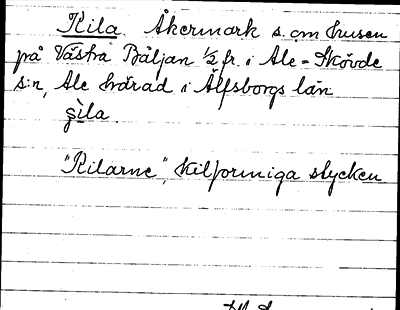 Kila. Åkermark s. om husen
på Västra Båljan ½ fr. i Ale-Skövde
s:n, Ale härad i Älfsborgs län
"Kilarne", kilformiga stycken